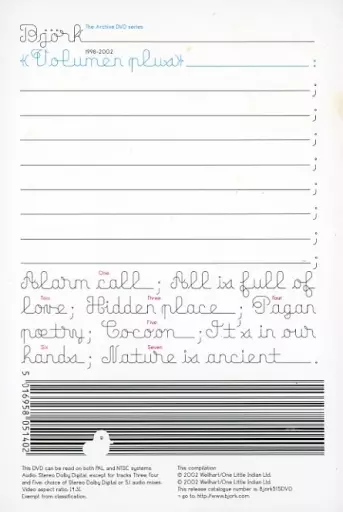 Björk The Archive DVD series
1998-2002
«Volumen plus» :
;
;
;
;
;
;
;
;
One
Alarm call ; All is full of
Two Three Four
love; Hidden place ; Pagan
Five
poetry; Cocoon ; It's in our
Six Seven
hands; Nature is ancient .
5 016958 051402
This DVD can be read on both PAL and NTSC systems.
Audio: Stereo Dolby Digital, except for tracks Three, four
and Five: choice of Stereo Dolby Digital or 5.1 audio mixes.
Video aspect ratio: (4:3).
Exempt from classification.
This compilation
℗ 2002 Wellhart/One Little Indian Ltd.
© 2002 Wellhart/One Little Indian Ltd.
This release catalogue number is Bjork515DVD
→ go to: http://www.bjork.com